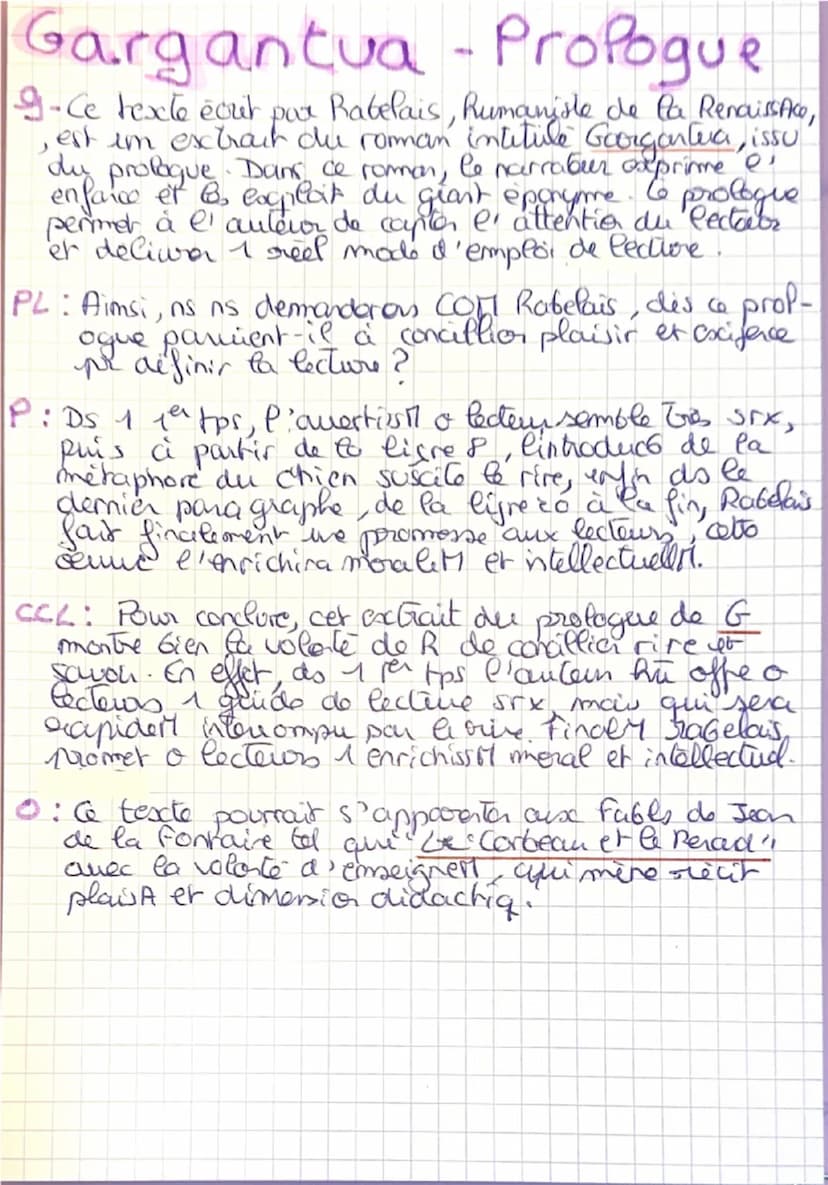 Gargantua - Prologue
g - Ce texte écrit par Rabelais, Humaniste de la Renaiss
, est un extrait du roman intitulé Gargantua, issu
du prologue. Dans ce roman, le narrateur exprime l'
enfance et les exploit du géant éponyme. Le prologue
permet à l'auteur de capter l'attention du lecteur
et délivrer 1 réel mode d'emploi de lecture.
PL : Ainsi, ns ns demanderons COM Rabelais, dès ce prol-
ogue parvient-il à concillier plaisir et exigence
pr définir la lecture ?
P : Ds 1 1er tps, l'avertissM o lecteur semble très srx,
puis à partir de la ligne 8, l'introduc6 de la
métaphore du chien suscite le rire, enfin ds le
dernier paragraphe, de la ligne 20 à la fin, Rabelais
fait finalement une promesse aux lecteurs, cette
l'enrichira moraleM et intellectuellM.
CCL : Pour conclure, cet extrait du prologue de G
montre bien la volonté de R de concillier rire et
savoir. En effet, ds 1 1er tps l'auteur offre o
lecteurs 1 guide de lecture srx, mais qui sera
rapideM interrompu par le rire. FinaleM Rabelais
promet o lecteurs 1 enrichissM moral et intellectuel.
O : Ce texte pourrait s'apparenter aux Fables de Jean
de la Fontaine tel que "Le Corbeau et le Renard",
avec la volonté d'enseigneM, qui mène récit
plaisA et dimension didactiq.